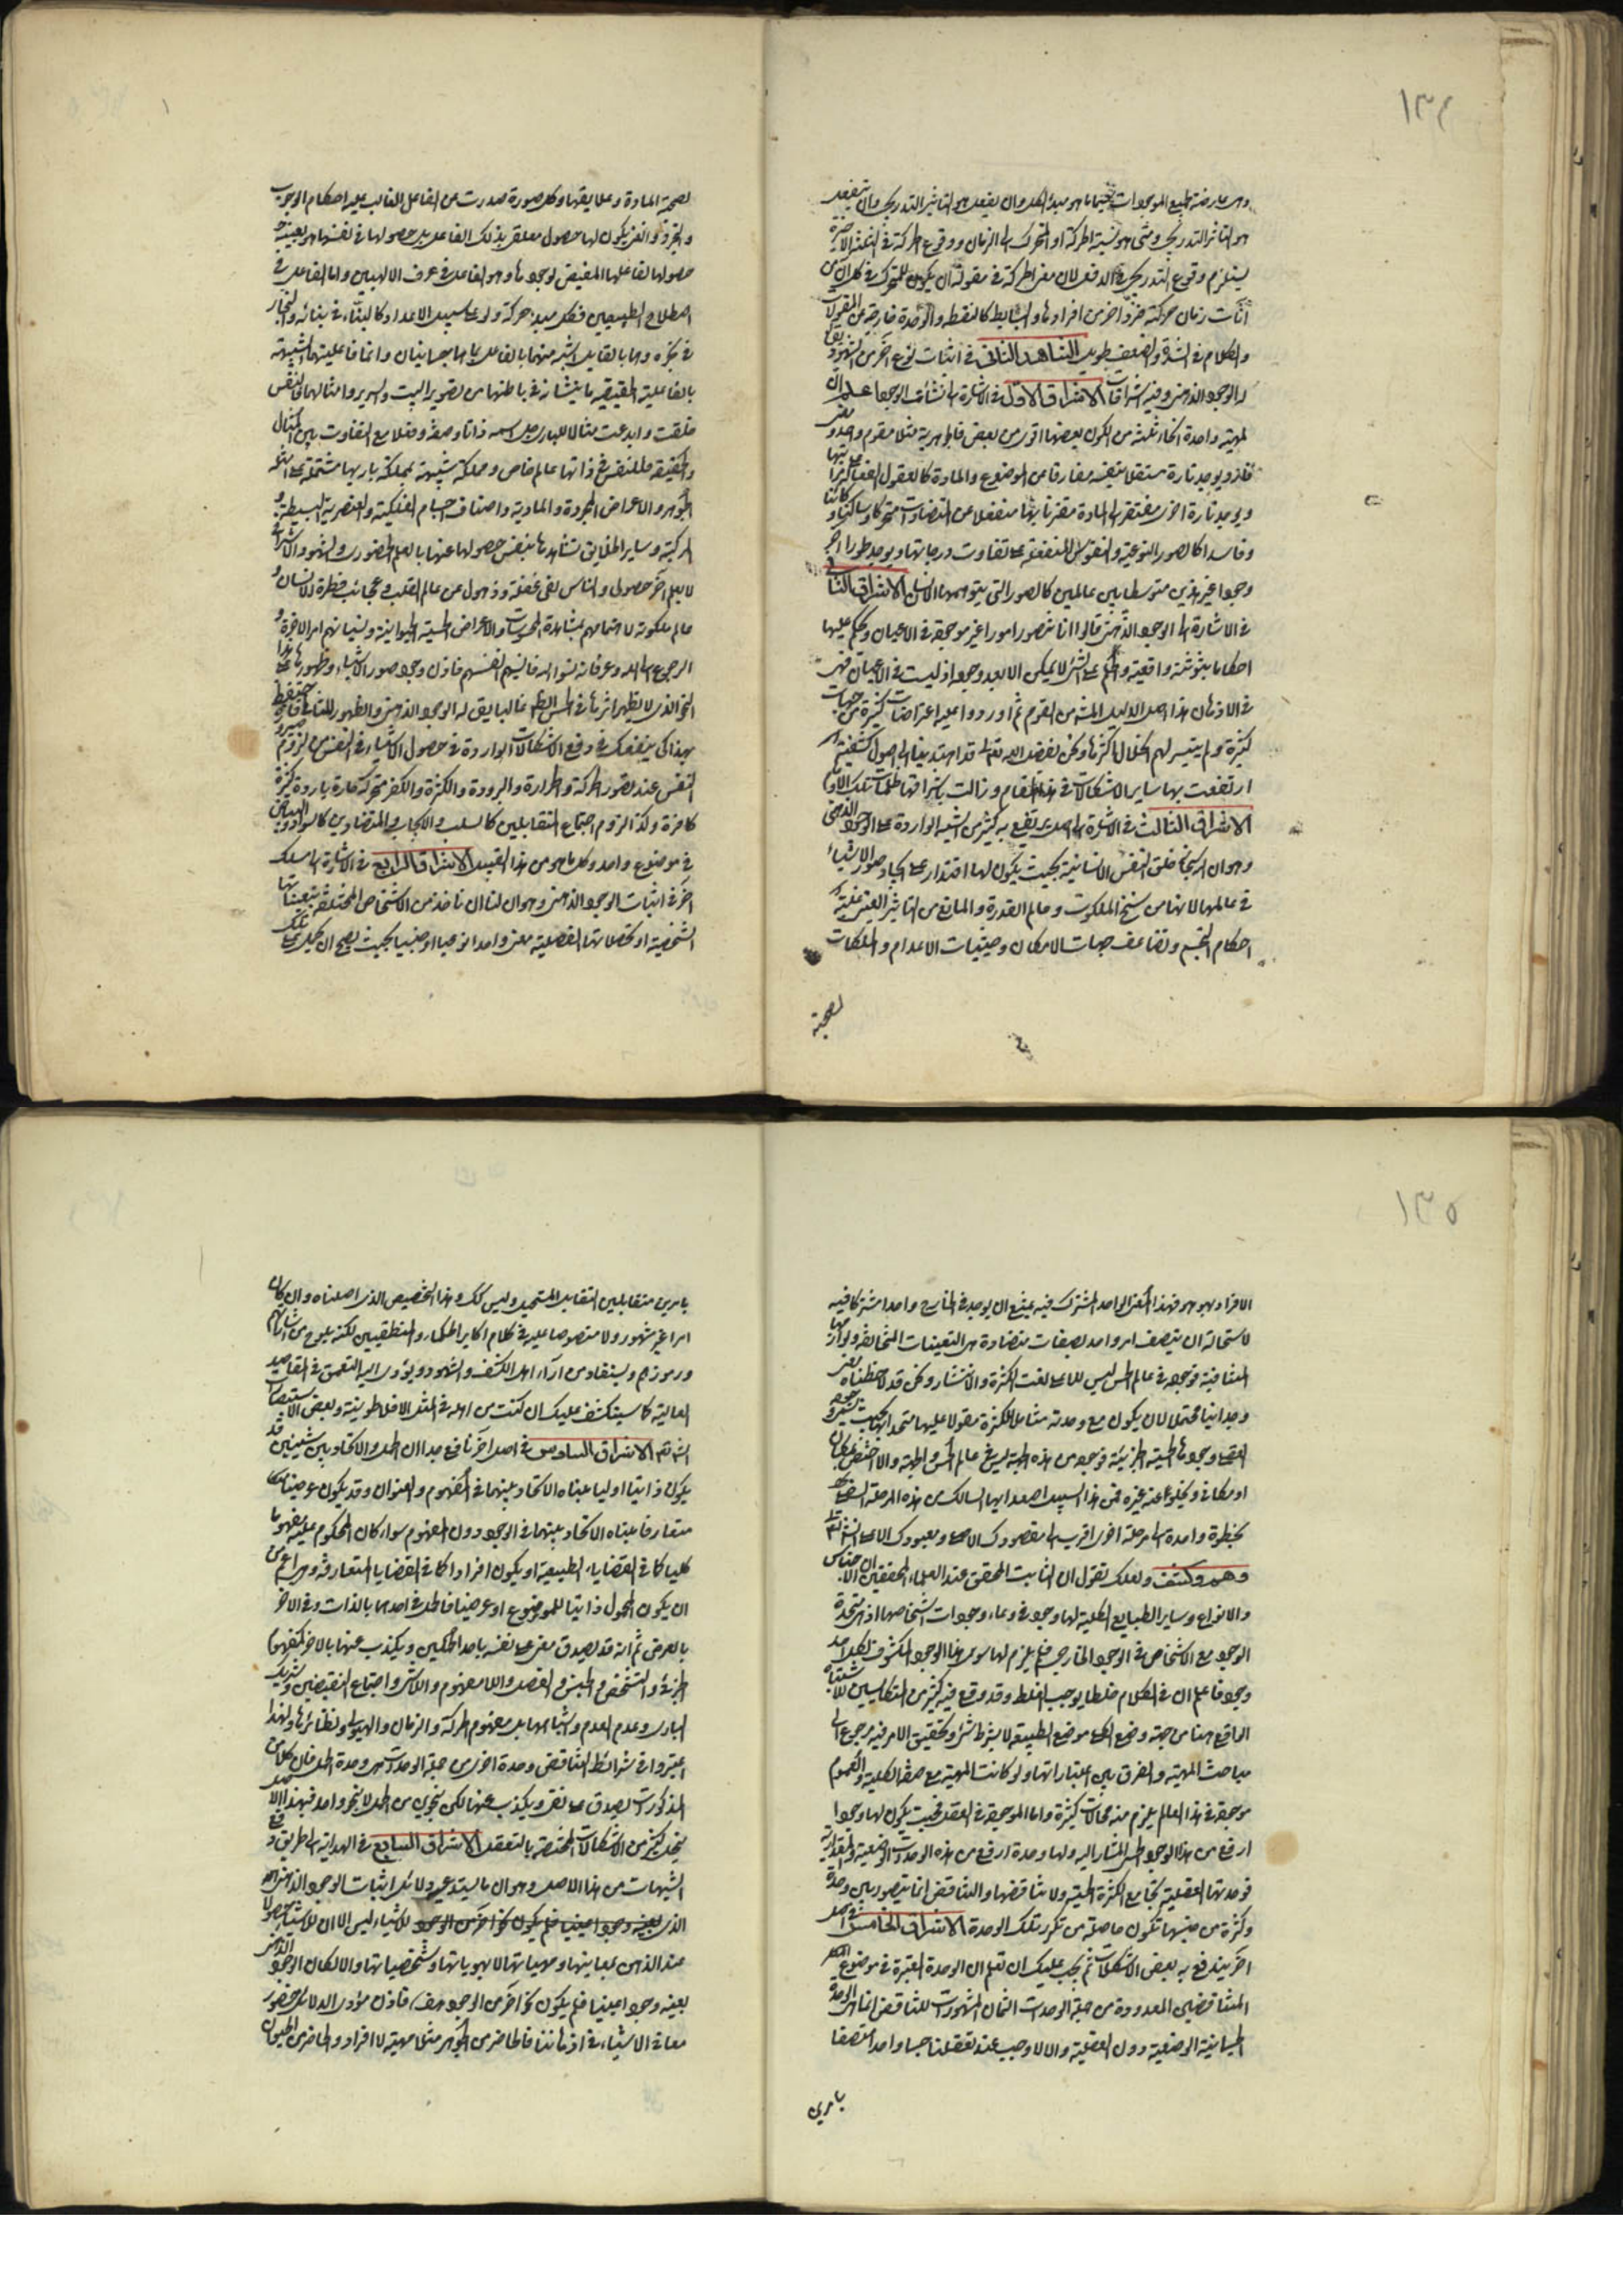 ١٣٤
وهى عارضة لجميع الموجودات حتى ما هو مبدأ الكل وان يفعل هو التاثير التدريجى وان ينفعل
هو التاثر التدريجى ومتى هو نسبة الحركة او المتحرك الى الزمان ووقوع الحركة فى الثلثة الاخيرة
يستلزم وقوع التدريجى فى الدفعى لان معنى الحركة فى مقولة ان يكون للمتحرك فى كل ان من
آنات زمان حركته فرد آخر من افرادها والبسايط كالنقطة والوحدة خارجة عن المقولات
والكلام فى الشدة والضعف طويل الشاهد الثانى فى اثبات نوع آخر من الشهود يقال
له الوجود الذهنى وفيه اشراقات الاشراق الاول فى الاشارة الى نشآت الوجود اعلم ان
لمهية واحدة انحاء ثلثة من الكون بعضها اقوى من بعض فالجوهرية مثلا مفهوم واحد ومعنى
فارد يوجد تارة مستقلا بنفسه مفارقا عن الموضوع والمادة كالعقول الفعالة على مراتبها
ويوجد تارة اخرى مفتقرا الى المادة مقترنا بها منفعلا عن المتضادات متحركا وساكنا وكائنا
وفاسدا كالصور النوعية والنفوس المنفعلة على تفاوت درجاتها ويوجد طورا آخر
وجودا غير هذين متوسطا بين عالمين كالصور التى يتوهمها الانسان الاشراق الثانى
فى الاشارة الى الوجود الذهنى قالوا انا نتصور امورا غير موجودة فى الاعيان ونحكم عليها
احكاما ثبوتية واقعية والحكم على الشئ لا يمكن الا بعد وجوده اذ ليست فى الاعيان فهى
فى الاذهان هذا اصل الدليل المشهور من القوم ثم اوردوا عليه اعتراضات كثيرة من جهات
كثيرة ولم يتيسر لهم انحلال اكثرها ونحن بفضل الله تعالى قد اهتدينا الى اصول كشفية
ارتفعت بها ساير الاشكالات فى هذا المقام وزالت باشراقها ظلمات تلك الاوهام
الاشراق الثالث فى الاشارة الى اصل يرتفع به كثير من الشبه الواردة على الوجود الذهنى
وهو ان الله سبحانه خلق النفس الانسانية بحيث يكون لها اقتدار على ايجاد صور الاشياء
فى عالمها لانها من سنخ الملكوت وعالم القدرة والمانع من التاثير العينى غلبة
احكام التجسم وتضاعف جهات الامكان وحيثيات الاعدام والملكات
لصحبة
لصحبة المادة وعلايقها وكل صورة صدرت عن الفاعل الغالب عليه احكام الوجوب
والتجرد والغنى يكون لها حصول تعلق بذلك الفاعل بل حصولها فى نفسها هو بعينه
حصولها لفاعلها المفيض لوجودها وهو الفاعل فى عرف الالهيين واما الفاعل فى
اصطلاح الطبيعيين فكل مبدء حركة ولو على سبيل الاعداد كالبناء فى بنائه والنجار
فى نجره وهما بالقابل اشبه منهما بالفاعل بما هما جسمانيان وانما فاعليتهما الشبيهة
بالفاعلية الحقيقية ما ينشاءانه فى باطنهما من تصوير البيت والسرير وامثالهما فالنفس
خلقت وابدعت مثالا للبارى جل اسمه ذاتا وصفة وفعلا مع التفاوت بين المثال
والحقيقة فللنفس فى ذاتها عالم خاص ومملكة شبيهة بمملكة باريها مشتملة على امثلة
الجواهر والاعراض المجردة والمادية واصناف الاجسام الفلكية والعنصرية البسيطة و
المركبة وساير الخلايق تشاهدها بنفس حصولها عنها بالعلم الحضورى والشهود الاشراقى
لا بعلم آخر حصولى والناس لفى غفلة وذهول عن عالم القلب وعجائب فطرة الانسان و
عالم ملكوته لاهتمامهم بمشاهدة المحسوسات والاعراض الحسية الحيوانية ونسيانهم امر الآخرة و
الرجوع الى الله وعرفانه نسوا الله فانسيهم انفسهم فاذن وجود صور الاشياء وظهورها على هذا
النحو الذى لا يظهر اثرها فى الحس الظاهر غالبا يقال له الوجود الذهنى والظهور المثالى فاحتفظ
بهذا كى ينفعك فى دفع الاشكالات الواردة فى حصول الاشياء فى النفس من لزوم صيرورة
النفس عند تصور الحركة والحرارة والبرودة والكثرة والكفر متحركة حارة باردة كثيرة
كافرة وكذا لزوم اجتماع المتقابلين كالسلب والايجاب والمتضادين كالسواد والبياض
فى موضوع واحد وكل ما هو من هذا القبيل الاشراق الرابع فى الاشارة الى مسلك
آخر فى اثبات الوجود الذهنى وهو ان لنا ان ناخذ من الاشخاص المختلفة بتعيناتها
الشخصية او تحصلاتها الفصلية معنى واحدا نوعيا او جنسيا بحيث يصح ان يحمل على تلك
١٣٥
الافراد بهو هو فهذا المعنى الواحد المشترك فيه يمتنع ان يوجد فى الخارج واحدا مشتركا فيه
لاستحالة ان يتصف امر واحد بصفات متضادة هى التعينات المتخالفة ولوازمها
المتنافية فوجوده فى عالم الحس ليس الا على نعت الكثرة والانتشار ونحن قد لاحظناه معنى
وحدانيا محتملا لان يكون مع وحدته شاملا للكثرة مقولا عليها متحدا بها بحيث
وجودها الحسية الجزئية فوجوده من هذه الجهة ليس فى عالم الحس والجهة والا اختص بمكان
او مكانى ويخلو عنه غيره فمن هذا السبيل اصعد ايها السالك من هذه المرحلة
بخطوة واحدة الى مرحلة اخرى اقرب الى مقصودك الاصلى ومعبودك الاعلى انشاء الله
وهم وكشف ولعلك تقول ان الثابت المحقق عند العلماء المحققين ان الاجناس
والانواع وساير الطبايع الكلية لها وجود فى وعاء وجودات اشخاصها اذ هى متحدة
الوجود مع الاشخاص فى الوجود الخارجى فلم يلزم لها سوى هذا الوجود المكشوف لكل احد
وجود فاعلم ان فى الكلام خلطا يوجب الغلط وقد وقع فيه كثير من المتكايسين للاشتباه
الواقع ههنا من جهة وضع الكلى موضع الطبيعة لا بشرط شئ وتحقيق الامر فيه مرجوع الى
مباحث المهية والفرق بين اعتباراتها ولو كانت المهية مع صفة الكلية والعموم
موجودة فى هذا العالم يلزم منه محالات كثيرة واما الموجودة فى العقل فحيث يكون لها وجود
ارفع من هذا الوجود الحسى المشار اليه ولها وحدة ارفع من هذه الوحدات الوضعية والمقدارية
فوحدتها العقلية تجامع الكثرة الحسية ولا تناقضها والتناقض انما يتصور بين وحدة
وكثرة من جنسها تكون حاصلة من تكرر تلك الوحدة الاشراق الخامس فى اصل
آخر يندفع به بعض الاشكالات ثم يجب عليك ان تعلم ان الوحدة المعتبرة فى موضوع
المتناقضين المعدودة من جملة الوحدات الثمان المشهورات للتناقض انما هى الوحدة
الجسمانية الوضعية دون العقلية والا لا وجب عند تعقلنا جسما واحدا متصفا
بامرين
بامرين متقابلين التقابل المستحيل وليس كذلك وهذا التخصيص الذى اصلناه وان كان
امرا غير مشهور ولا منصوصا عليه فى كلام اكابر الحكماء والمنطقيين لكنه يلوح من اشاراتهم
ورموزهم ويستفاد من آراء اهل الكشف والشهود ويؤدى اليه التعمق فى المقاصد
العالية كما سينكشف عليك ان كنت من اهله فى المثل الافلاطونية وبعض
انشاء الله الاشراق السادس فى اصل آخر نافع جدا ان الحمل والاتحاد بين شيئين قد
يكون ذاتيا اوليا مبناه الاتحاد بينهما فى المفهوم والعنوان وقد يكون عرضيا
متعارفا مبناه الاتحاد بينهما فى الوجود دون المفهوم سواء كان المحكوم عليه مفهوما
كليا كما فى القضايا الطبيعية او يكون افرادا كما فى القضايا المتعارفة وهى اعم من
ان يكون المحمول ذاتيا للموضوع او عرضيا فالحمل فى احدهما بالذات وفى الآخر
بالعرض ثم انه قد يصدق معنى على نفسه باحد الحملين ويكذب عنها بالآخر كمفهوم
الجزئى والتشخص والجنس والفصل واللا مفهوم واللاشئ واجتماع النقيضين وشريك
البارى وعدم العدم واشباهها بل مفهوم الحركة والزمان والهيولى ونظائرها ولهذا
اعتبروا فى شرائط التناقض وحدة اخرى من جملة الوحدات هى وحدة الحمل فان كلا من
المذكورات يصدق على نفسه ويكذب عنها لكن بنحوين من الحمل لا بنحو واحد فبهذا الاصل
ينحل كثير من الاشكالات المختصة بالتعقل الاشراق السابع فى الهداية الى طريق دفع
الشبهات من هذا الاصل وهو ان ما يستدعيه دلائل اثبات الوجود الذهنى
الذى بعينه وجودا عينيا فلم يكون نحوا آخر من الوجود للاشياء ليس الا ان للاشياء حصولا
عند الذهن بمعانيها ومهياتها لا بهوياتها وتشخصياتها والا لكان الوجود الذهنى
بعينه وجودا عينيا فلم يكون نحوا آخر من الوجود هف فاذن مؤدى الدلائل حضور
معانى الاشياء فى اذهاننا فالحاضر من الجوهر مثلا مهيته لا افراده والحاضر من الحيوان